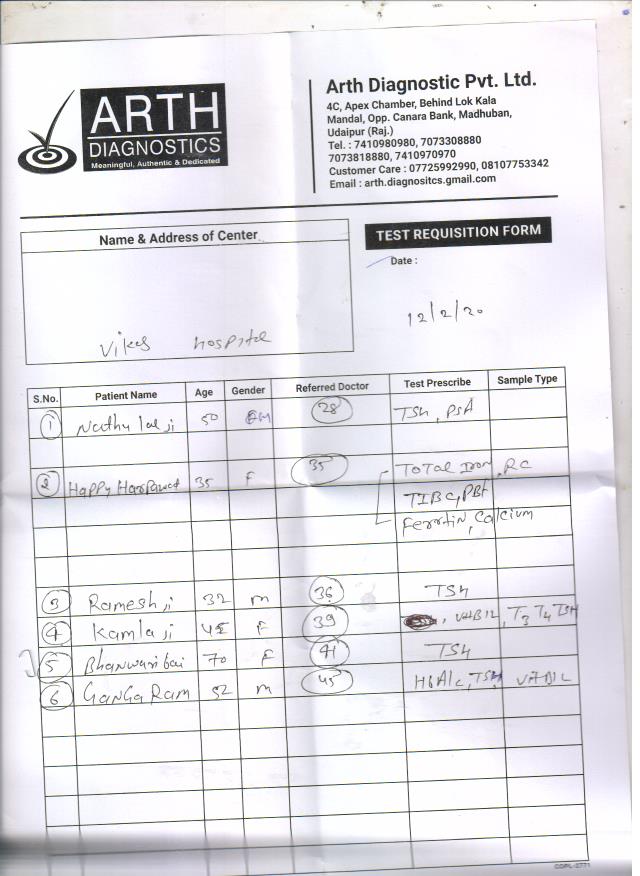 ARTH
DIAGNOSTICS
Meaningful, Authentic & Dedicated
Arth Diagnostic Pvt. Ltd.
4C, Apex Chamber, Behind Lok Kala
Mandal, Opp. Canara Bank, Madhuban,
Udaipur (Raj.)
Tel. : 7410980980, 7073308880
7073818880, 7410970970
Customer Care : 07725992990, 08107753342
Email : arth.diagnositcs.gmail.com
Name & Address of Center
Vikas hospital
TEST REQUISITION FORM
Date :
12/2/20
S.No. Patient Name Age Gender Referred Doctor Test Prescribe Sample Type
1 Nathu lal ji 50 M 28 TSH, PSA
2 Happy 35 F 35 TOTAL Iron, RC
TIBC, PBF
Ferrtin, Calcium
3 Ramesh ji 32 m 36 TSH
4 Kamla ji 45 F 39 , VitB12, T3 T4 TSH
5 Bhanwari bai 70 F 41 TSH
6 GanGa Ram 52 m 45 HbA1c, TSH, VitB12
COPL-2771